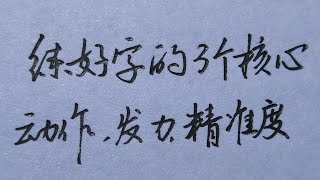 练好字的3个核心
动作、发力、精准度